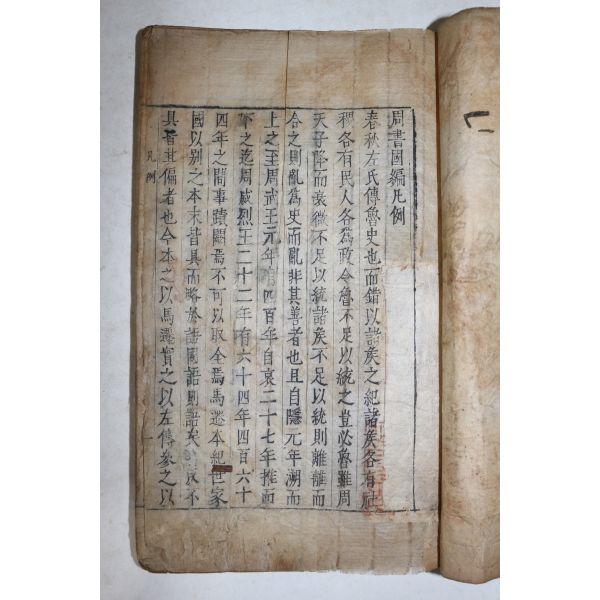 周書國編凡例
春秋左氏傳魯史也而錯以諸矦之紀諸矦各有社
稷各有民人各爲政令魯不足以統之豈必魯雖周
天子降而衰微不足以統諸矦不足以統則離離而
合之則亂爲史而亂非其善者也且自隱元年溯而
上之至周武王元年四百年自哀二十七年推而
下之迄周威烈王二十二年有六十四年四百六十
四年之間事蹟闕焉不可以取全焉馬遷本紀世家
國以别之本末皆具而略於語國語則語矣不
具皆其偏者也今本之以馬遷實之以左傳參之以
凡例
一